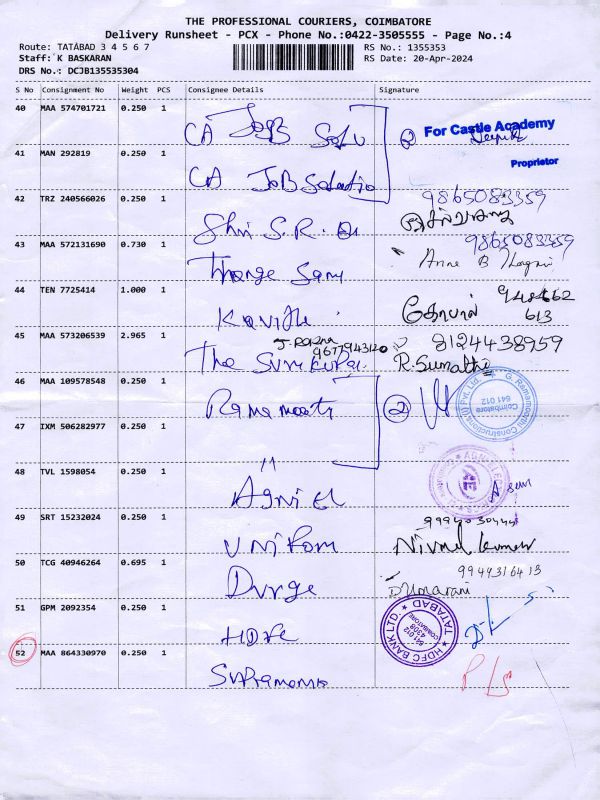 THE PROFESSIONAL COURIERS, COIMBATORE
Delivery Runsheet - PCX - Phone No.:0422-3505555 - Page No.:4
Route: TATABAD 3 4 5 6 7
RS No.: 1355353
Staff: K BASKARAN
RS Date: 20-Apr-2024
DRS No.: DCJB135535304
S No Consignment No Weight PCS Consignee Details Signature
40 MAA 574701721 0.250 1
CA JOB Solu
For Castle Academy
Proprietor
41 MAN 292819 0.250 1
CA JOB Solutio
42 TRZ 240566026 0.250 1
9865083359
Shri S.R.
43 MAA 572131690 0.730 1
9865083359
Thange Samy
44 TEN 7725414 1.000 1
Kavith
கோபால்
613
45 MAA 573206539 2.965 1
9677943120
8124438959
The
R. Sumathi
46 MAA 109578548 0.250 1
Ramamoorti
2
G. Ramamoorthi Constructions (I) Pvt. Ltd.
Coimbatore
641 012
47 IXM 506282977 0.250 1
"
48 TVL 1598054 0.250 1
Agni El
49 SRT 15232024 0.250 1
Unifom
Nirmal Kumar
50 TCG 40946264 0.695 1
Durge
9944316413
D Umarani
51 GPM 2092354 0.250 1
HDFC
HDFC BANK LTD. TATABAD
COIMBATORE
641 012
52 MAA 864330970 0.250 1